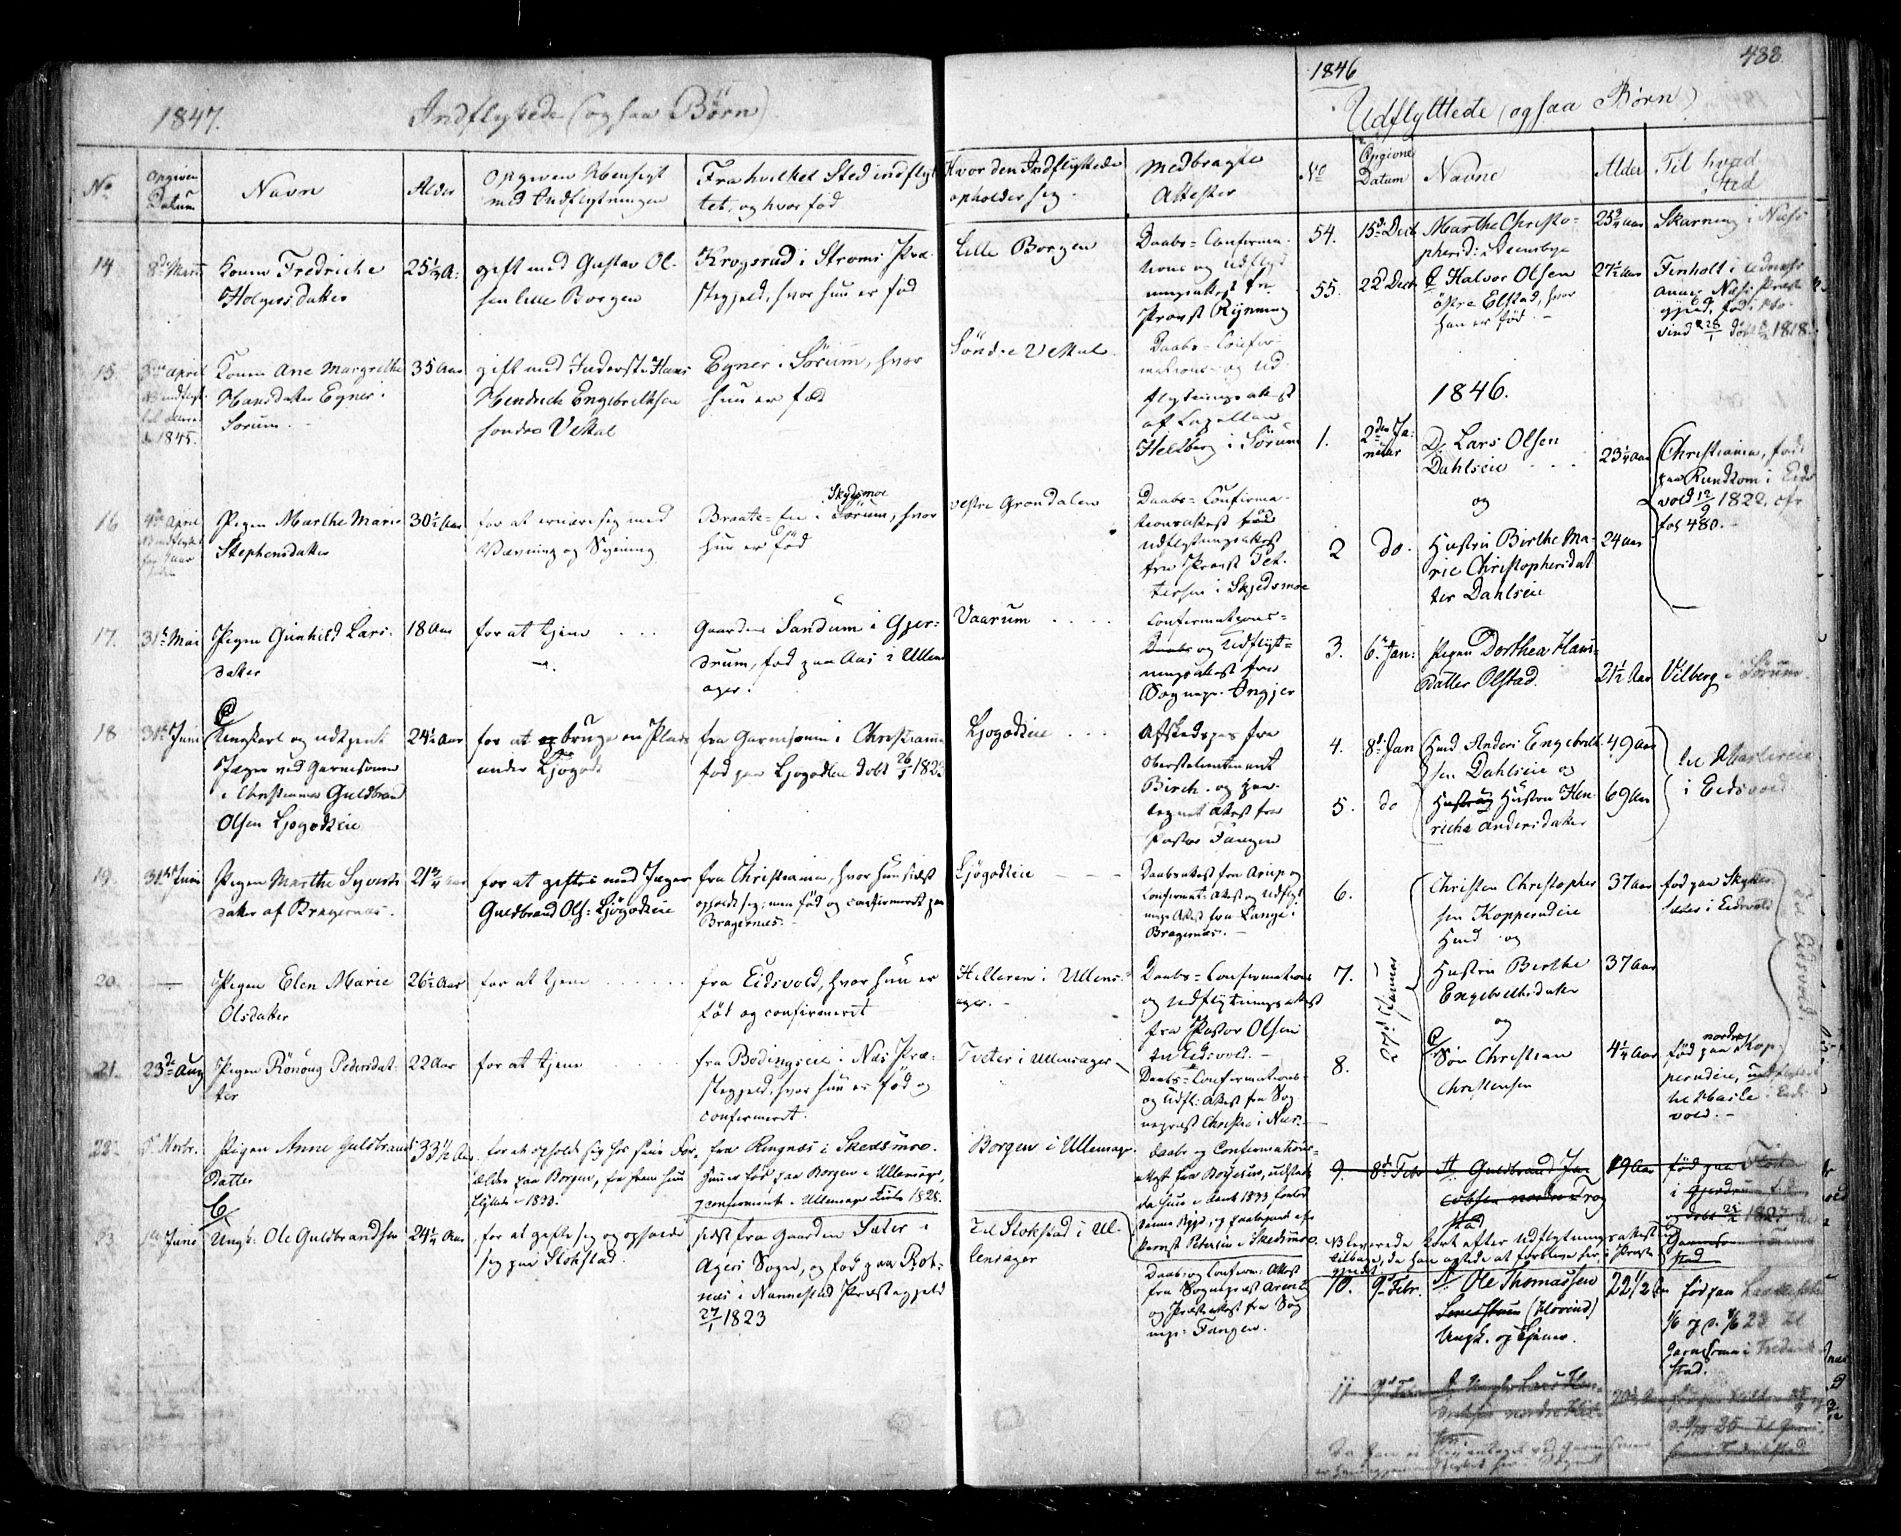 1847.
Indflyttede (ogsaa Børn)
No
Opgiven Datum
Navn
Alder
Opgiven Hensigt med Indflytningen
Fra hvilket Sted indflyttet, og hvor fød
Hvor den Indflyttede opholder sig
Medbragte Attester
14
8de Marti
Konen Fredriche
Holgersdatter
25 1/4 A:
gift med Gustav Ol-
sen lille Borgen
Krogsrud i Strøms Præ-
stegjeld, hvor hun er fød
Lille Borgen
Daabs- Confirma-
tions og Udflyt-
ningsattest fra
Provst Rynning
15.
April
1845.
Konen Ane Margrethe
Hansdatter Egner i
Sørum.
35 Aar
gift med Inderste Hans
Hendrick Engebretksen
søndre Vestal
Egner i Sørum, hvor
hun er fød
Søndre Vestal
Daabs- Confir-
mations- og Ud-
flytningsattest
af Capellan
Heltberg i Sørum
16
April
Pigen Marthe Marie
Stephensdatter
30 1/2 Aar
for at ernære sig med
Vævning og Syening
Skydsmoe
Braate-Eie i Sørum, hvor
hun er fød
vestre Grøndalen
Daabs- Confirma-
tionsattest
Udflytningsattest
fra Provst Pet-
tersen i Skjedsmoe
17.
31te Mai
Pigen Gunhild Lars-
datter
18 Aar
for at tjene
Gaarden Sandum i Gjer-
drum, fød paa Aas i Ullens-
ager.
Vaarum
Confirmations-
Daabs og Udflyt-
ningsattest fra
Sognepr. Angjer
18
31te Juni
Ungkarl og udtjent
Jæger ved Garnisonen
i Christiania Guldbrand
Olsen Ljøgodteie
24 1/2 Aar
for at bruge en Plads
under Ljøgodt
fra Garnisonen i Christiania
fød paa Ljøgodteie døbt 26/1 1823
Ljøgodteie
Afskedspas fra
Oberstelieutenant
Birch. og paa-
tegnet Attest fra
Pastor Fangen
19.
31te Juni
Pigen Marthe Syverts-
datter af Bragernæs.
21 3/4 Aar
for at giftes med Jæger
Guldbrand Ols: Ljøgodteie
fra Christiania, hvor hun sidst
opholdt sig; men fød og confirmeret paa
Bragernæs.
Ljøgodteie
Daabsattest fra Arup og
Confirmat: Attest og Udflyt-
nings Attest fra Lange i
Bragernæs.
20.
Pigen Elen Marie
Olsdatter
26 1/2 Aar
for at tjene
fra Eidsvold, hvor hun er
fød og confirmeret
Helleren i Ullens-
ager.
Daabs- Confirmations
og Udflytningsattest
fra Pastor Olsen
til Eidsvold.
21.
23de Aug
Pigen Rønnøug Pedersdat-
ter
22 Aar
for at tjene
fra Bødingseie i Næs Præ-
stegjeld, hvor hun er fød og
confirmeret.
Tveter i Ullensager
Daabs- Confirmations-
og Udfl: Attest fra Sog-
nepræst Christie i Næs.
22.
5 Novbr.
Pigen Anne Guldbrands
Datter
33 1/2 Aar
for at ophold sig hos sine For-
ældre paa Borgen, fra hvem hun
flyttede i 1833.
fra Ringnæs i Skedsmoe.
hun er fød paa Borgen i Ullensager,
og confirmeret i Ullensager Kirke 1828.
Borgen i Ullensager
Daabs og Confirmations-
attest fra Boyesen, udstedt
da hun i Aaret 1833, forlod
denne Bygd, og paategnet af
Provst Petersen i Skedsmoe.
23
Juni
Ungk: Ole Guldbrandsen
24 1/2 Aar
for at gifte sig og opholde
sig paa Stokstad.
sidst fra Gaarden Sæter i
Agers Sogn, og fød paa Rot-
næs i Nannestad Præstegjeld
27/1 1823
Til Stokstad i Ul-
lensager
Daabs og Confirm: Attest
fra Sognepræst Arentz
og Præsteattest fra Sog-
nepr: Fangen.
1846
488
Udflyttede (ogsaa Børn)
No
Opgivne Datum
Navne
Alder
Til hvad Sted
54.
15de Decb
Marthe Christo-
phersd: Arensbye
25 3/4 Aar
Skarning i Næs
55.
22 Decb
Halvor Olsen
østre Elstad, hvor
han er fød.
27 1/2 Aar
Fenholt i Udnæs
Annex Næs Præste-
gjeld,
1818.
1846.
1.
2den Ja-
nuar
Lars Olsen
Dahlseie
23 1/4 Aar
Christiania, fød
paa Rundtom i Eids-
vold 12/9 1822, cfr
fol 480.
og
2
do.
Hustru Birthe Ma-
rie Christophersdat-
ter Dahlseie
24 Aar
3.
6te Jan:
Pigen Dorthea Hans-
datter Olstad.
21 1/2 Aar
Vilberg i Sørum.
4.
8de Jan
Hmd Anders Engebrett-
sen Dahlseie og
49 Aar
5.
do
Hustru Hen-
richa Andersdatter
69 Aar
i Eidsvold
6.
22de Januar
Christen Christopher-
sen Kopperudeie
Hmd og
37 Aar
fød paa
i Eidsvold
til Eidsvold
7.
Hustru Berthe
Engebrethsdatter
37 Aar
og
8.
Søn Christian
Christensen
4 1/4 Aar
fød paa nordre Kop-
perudeie, udflyttet
til Hasle i Eids-
vold.
9.
8de Febr
Guldbrand Ja-
cobsen nordre Trog-
stad
19 Aar
fød paa
i Gjerdrum
og døbt 1827
NB leverede kort efter Udflytningsattesten
tilbage, da han agtede at forblive her i Præste-
gjeldet.
10.
9de Febr.
Ole Thomassen
(Hovind)
Ungk. og Tjener.
22 1/2 Aar
fød paa
Garnisonen i Frederik-
stad.
11